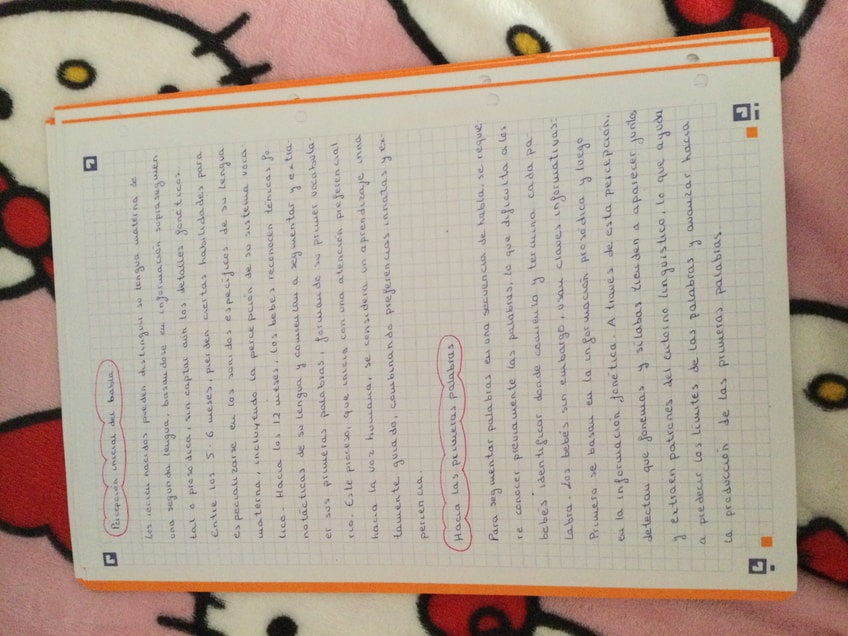 Percepción inicial del habla
Los recien nacidos pueden distinguir su lengua materna de
una segunda lengua, basandose en información suprasegmen
tal o prosodica, sin captar aún los detalles fonéticos.
Entre los 5-6 meses, pierden ciertas habilidades para
especializarse en los sonidos específicos de su lengua
materna, incluyendo la percepción de su sistema voca-
lico. Hacia los 12 meses, los bebés reconocen ténicas fo
notácticas de su lengua y comienzan a segmentar y extra-
er sus primeras palabras, formando su primer vocabula-
rio. Este proceso, que inicia con una atención preferencial
hacia la voz humana, se considera un aprendizaje inna
tamente guiado, combinando preferencias innatas y ex-
periencia.
Hacia las primeras palabras
Para segmentar palabras en una secuencia de habla, se requie
re conocer previamente las palabras, lo que dificulta a los
bebés identificar donde comienza y termina cada pa-
labra. Los bebés sin embargo, usan claves informativas:
Primero se basan en la información prosódica y luego
en la información fonética. A través de esta percepción,
detectan que fonemas y sílabas tienden a aparecer juntos
y extraen patrones del entorno lingüístico, lo que ayuda
a predecir los límites de las palabras y avanzar hacia
la producción de las primeras palabras